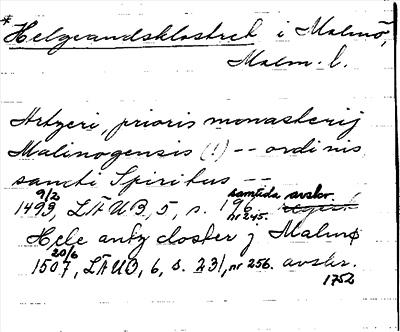 *Helgeandsklostret i Malmö,
Malm. l.
Artzeri, prioris monasterij
Malinogensis (!) -- ordinis
sancti Spiritus --
9/2 1499, LÄUB, 5, s. 196, nr 245. samtida avskr.
Hele antz closter j Malmø
20/6 1507, LÄUB, 6, s. 231, nr 256. avskr.
1752